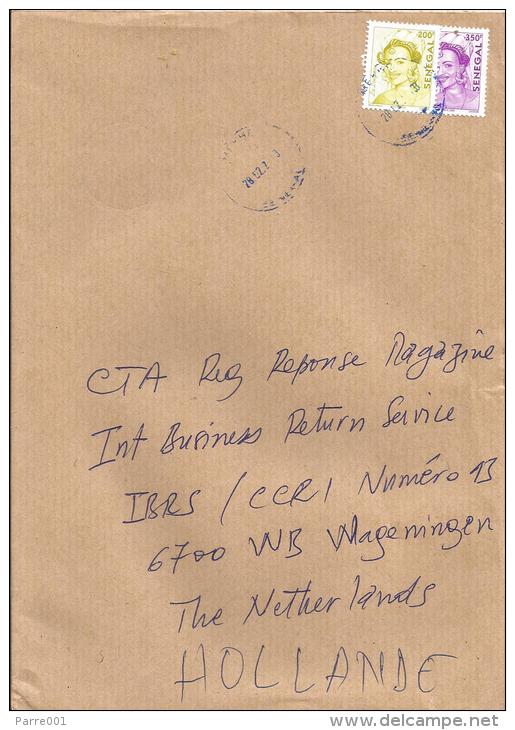 200F
SENEGAL
350F
SENEGAL
28.02.
28.02.
CTA Reg Reponse Magazine
Int Business Return Service
IBRS / CCRI Numéro 13
6700 WB Wageningen
The Netherlands
HOLLANDE
Parre001
www.delcampe.net